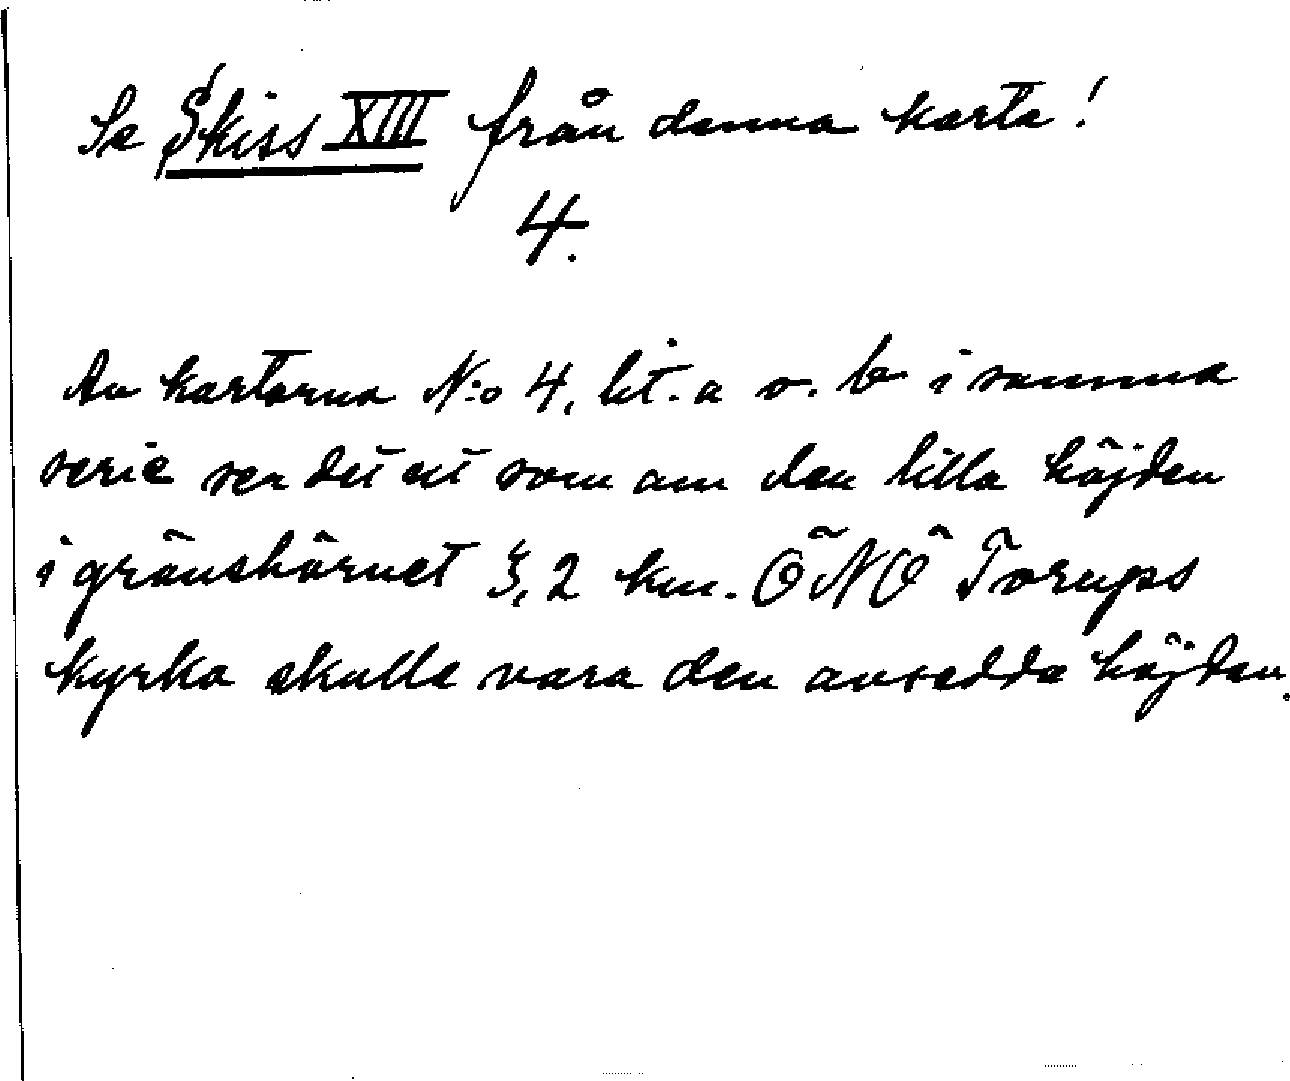 Se Skiss XIII från denna karta!
4.
Av kartorna N:o 4, lit. a o. b i samma
serie ser det ut som om den lilla höjden
i gränshörnet 3,2 km. ÖNÖ Torups
kyrka skulle vara den avsedda höjden.